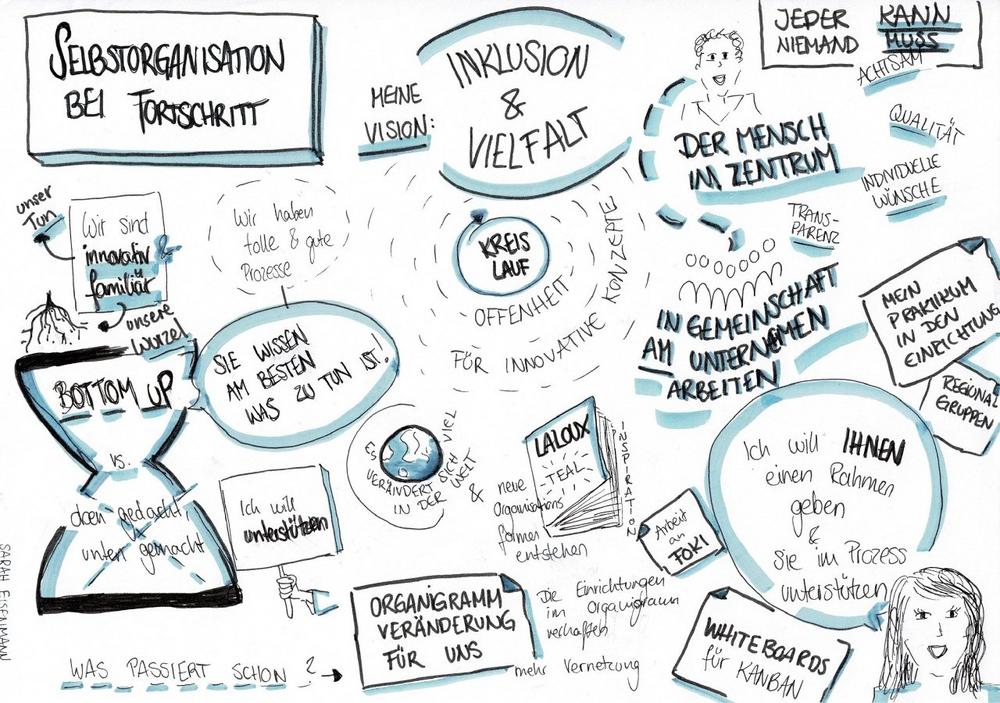 SELBSTORGANISATION
BEI FORTSCHRITT
MEINE
VISION:
INKLUSION
&
VIELFALT
KREIS
LAUF
OFFENHEIT
FÜR INNOVATIVE KONZEPTE
JEDER KANN
NIEMAND MUSS
ACHTSAM
QUALITÄT
INDIVIDUELLE
WÜNSCHE
TRANS-
PARENZ
DER MENSCH
IM ZENTRUM
IN GEMEINSCHAFT
AM UNTERNEHMEN
ARBEITEN
unser
Tun
Wir sind
innovativ &
familiär
unsere
Wurzel
Wir haben
tolle & gute
Prozesse
SIE WISSEN
AM BESTEN
WAS ZU TUN IST!
BOTTOM UP
vs.
oben gedacht,
unten gemacht
Ich will
unterstützen
Es
VERÄNDERT SICH VIEL
IN DER WELT
&
LALOUX
TEAL
INSPIRATION
neue
Organisations
formen
entstehen
MEIN
PRAKTIKUM
IN DEN
EINRICHTUNG
REGIONAL
GRUPPEN
Ich will IHNEN
einen Rahmen
geben
&
Sie im Prozess
unterstützen
Arbeit
an
FOKI
WHITEBOARDS
für KANBAN
WAS PASSIERT SCHON?
ORGANIGRAMM
VERÄNDERUNG
FÜR UNS
Die Einrichtungen
im Organigramm
verhaften
mehr Vernetzung